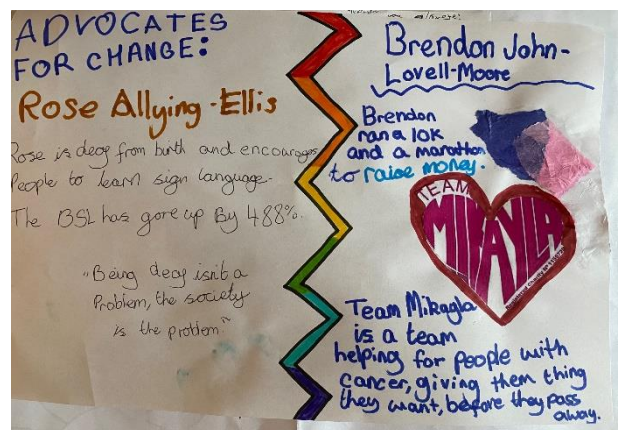 ADVOCATES
FOR CHANGE:
Rose Allying-Ellis
Rose is deaf from birth and encourages
People to learn sign language.
The BSL has gone up By 488%.
"Being deaf isn't a
Problem, the society
is the problem"
Brendon John-
Lovell-Moore
Brendon
ran a 10K
and a marathon
to raise money.
TEAM
MIKAYLA
Team Mikayla
is a team
helping for people with
cancer, giving them thing
they want, before they pass
away.